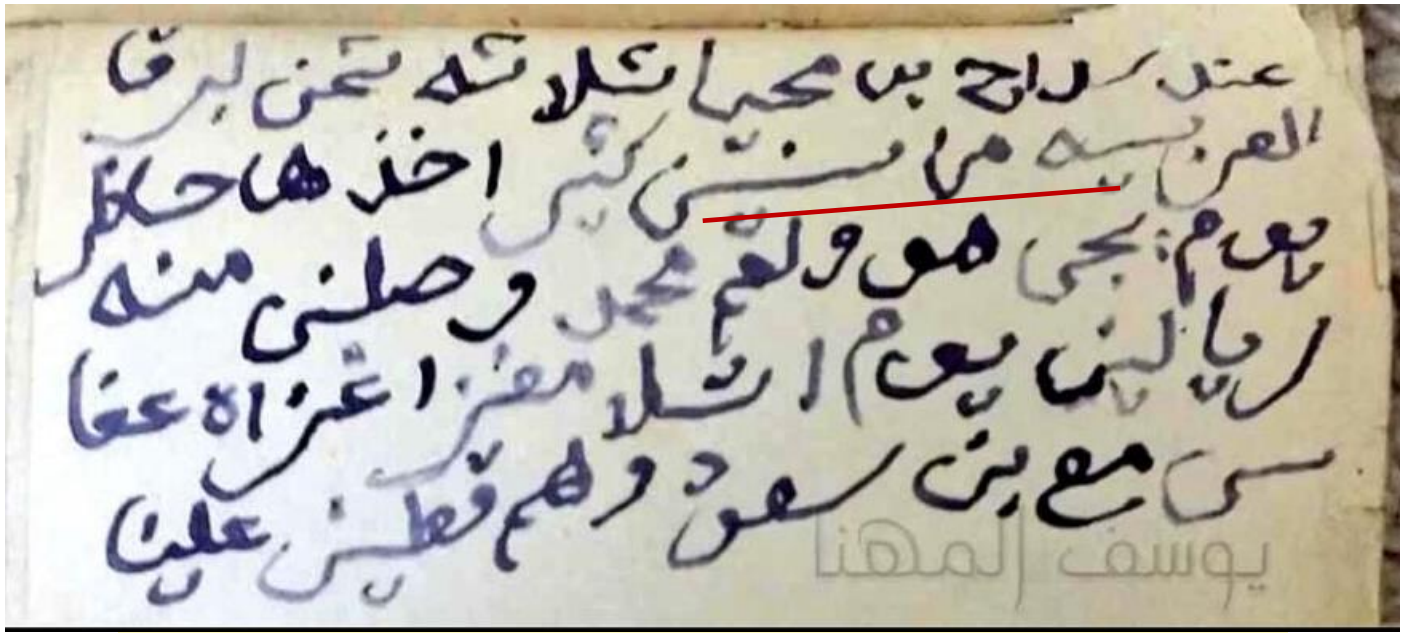 عند سراح بن محيا ثلاثه ثمن لبرقا
العرنيسيه من سنتين كثير اخذها حاظر
يوم يجي هو ولغم محمد وصلني منه
ريالين يوم اشلا مغزا غزاه عفا
سي مع بن سعود وهم قطين علينا
يوسف المهنا